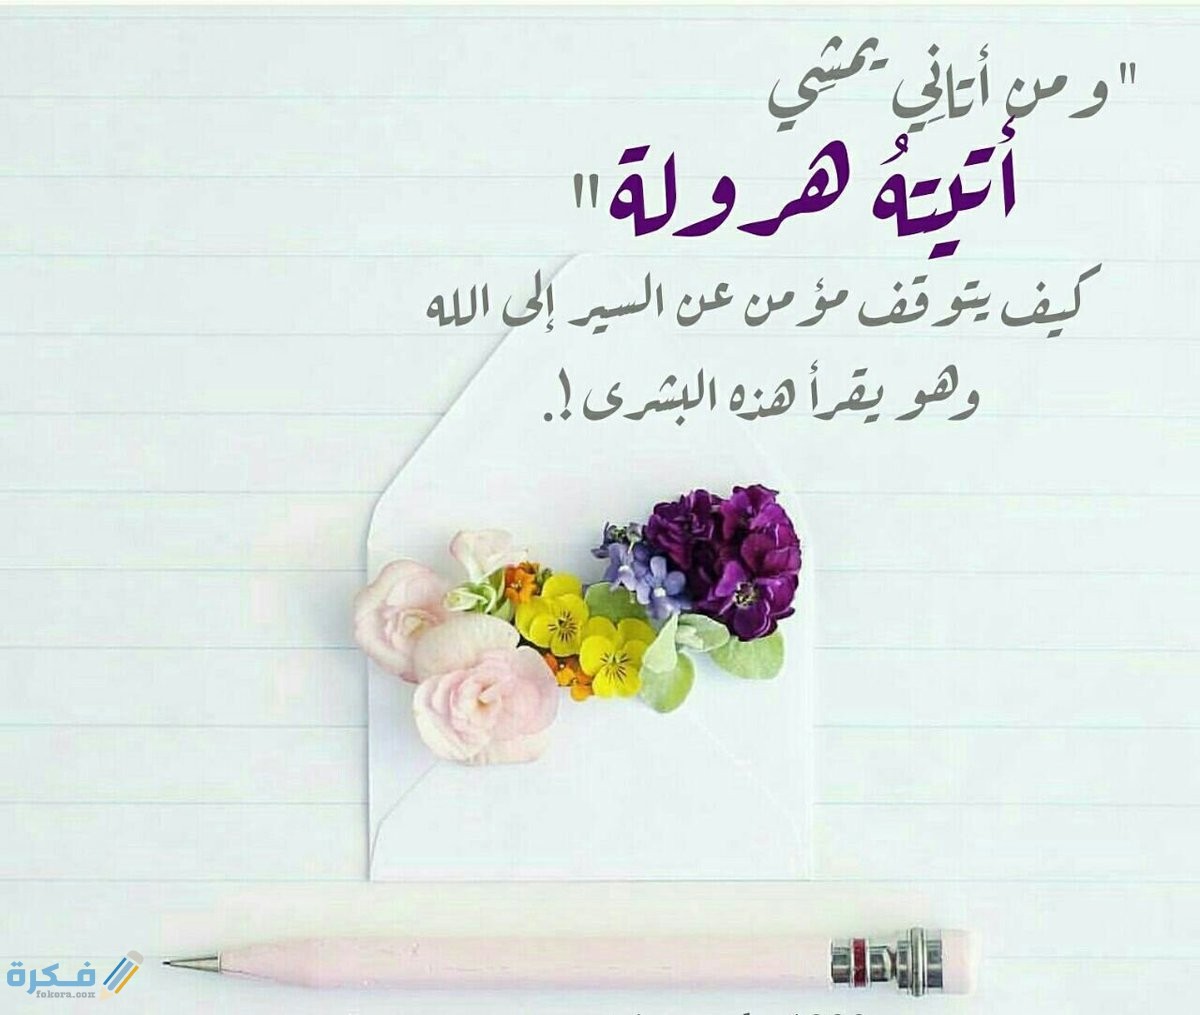 "و من أتانِي يمشِي
أتيتهُ هرولة"
كيف يتوقف مؤمن عن السير إلى الله
وهو يقرأ هذه البشرى!.
فكرة
fekera.com